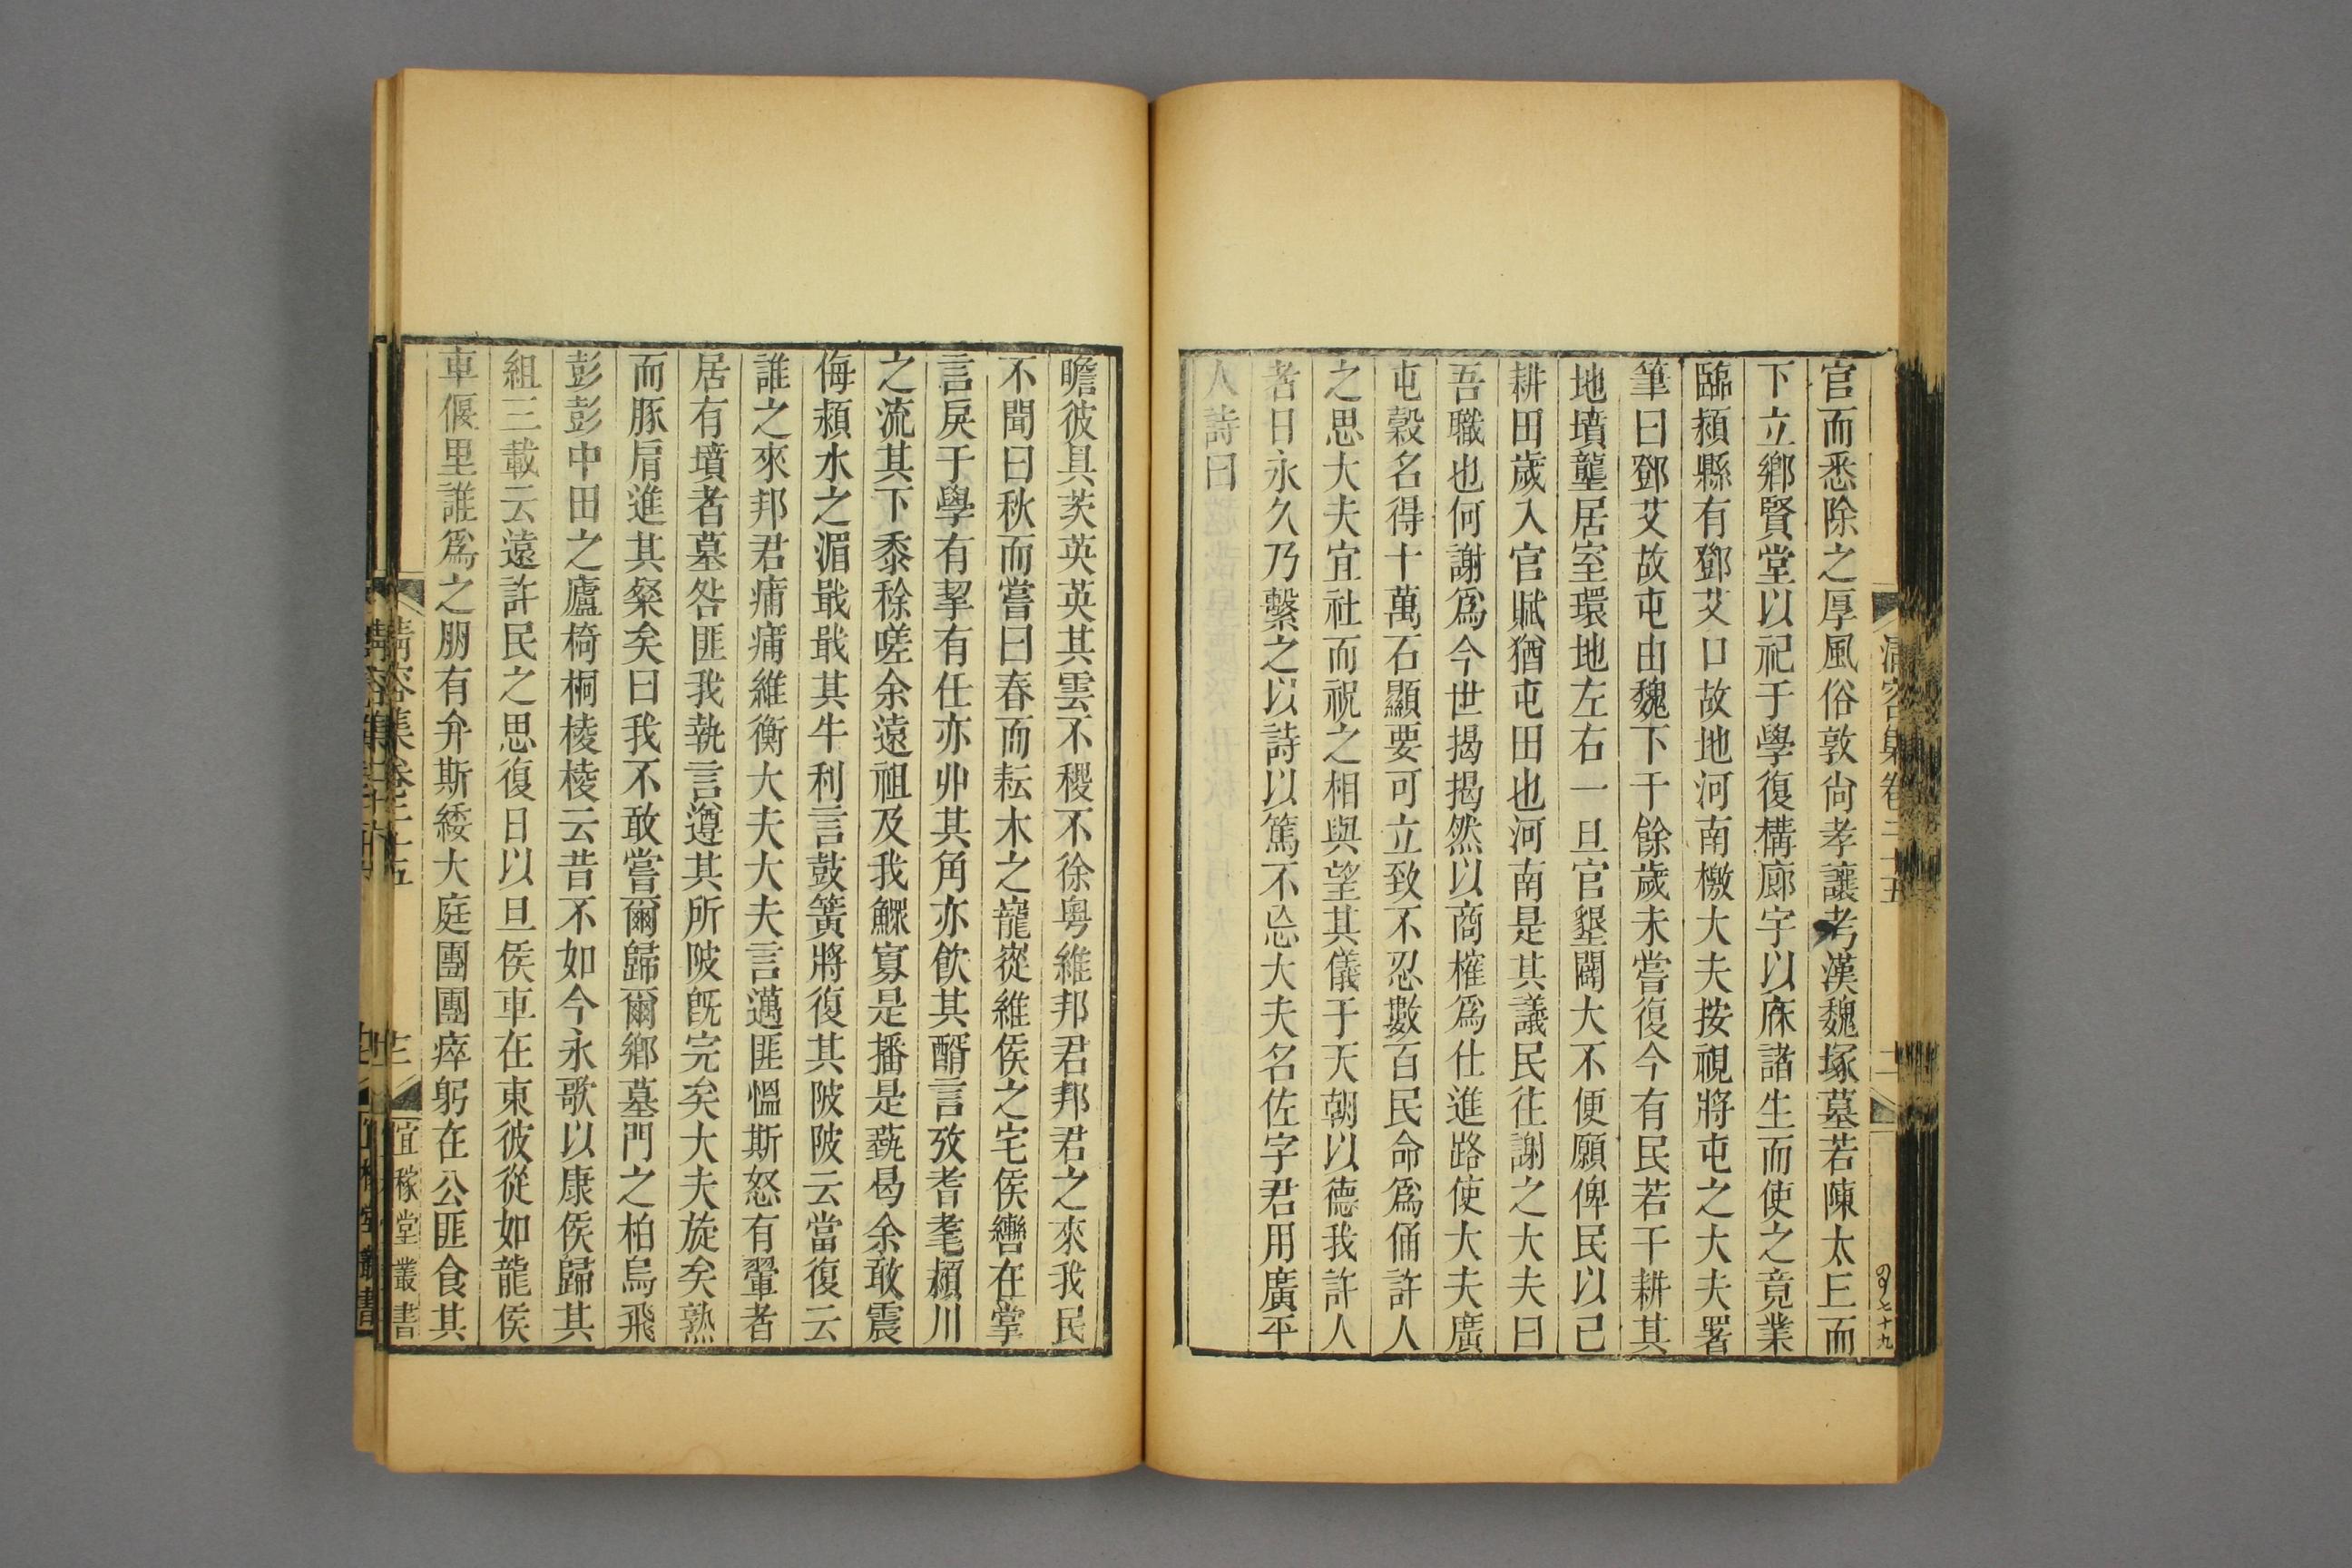 官而悉除之厚風俗敦尙孝讓考漢魏塚墓若陳太丘而
下立鄉賢堂以祀于學復構廊字以庥諸生而使之竟業
臨潁縣有鄧艾口故地河南檄大夫按視將屯之大夫署
筆曰鄧艾故屯由魏下千餘歲未嘗復今有民若干耕其
地墳壟居室環地左右一旦官墾闢大不便願俾民以已
耕田歲入官賦猶屯田也河南是其議民往謝之大夫曰
吾職也何謝爲今世揭揭然以商榷爲仕進路使大夫廣
屯穀名得十萬石顯要可立致不忍數百民命爲俑許人
之思大夫宜社而祝之相與望其儀于天朝以德我許人
者日永久乃繫之以詩以篤不忘大夫名佐字君用廣平
人詩曰
清容集卷三十五
二
七十九
瞻彼具茨英英其雲不稷不徐粤維邦君邦君之來我民
不聞曰秋而嘗曰春而耘木之寵嵸維侯之宅侯轡在掌
言戾于學有挈有仕亦丱其角亦飮其醑言攷耆耄潁川
之流其下黍稌嗟余遠祖及我鰥寡是播是蓺曷余敢震
侮潁水之湄戢戢其牛利言鼓簧將復其陂陂云當復云
誰之來邦君痡痡維衡大夫大夫言邁匪慍斯怒有翬者
居有墳者墓咎匪我執言遵其所陂旣完矣大夫旋矣熟
而豚肩進其粲矣曰我不敢嘗爾歸爾鄉墓門之柏烏飛
彭彭中田之廬椅桐棱棱云昔不如今永歌以康侯歸其
組三載云遠許民之思復日以旦侯車在東彼從如龍侯
車偃里誰爲之朋有弁斯緌大庭團團瘁躬在公匪食其
清容集卷三十五
三
宜稼堂叢書